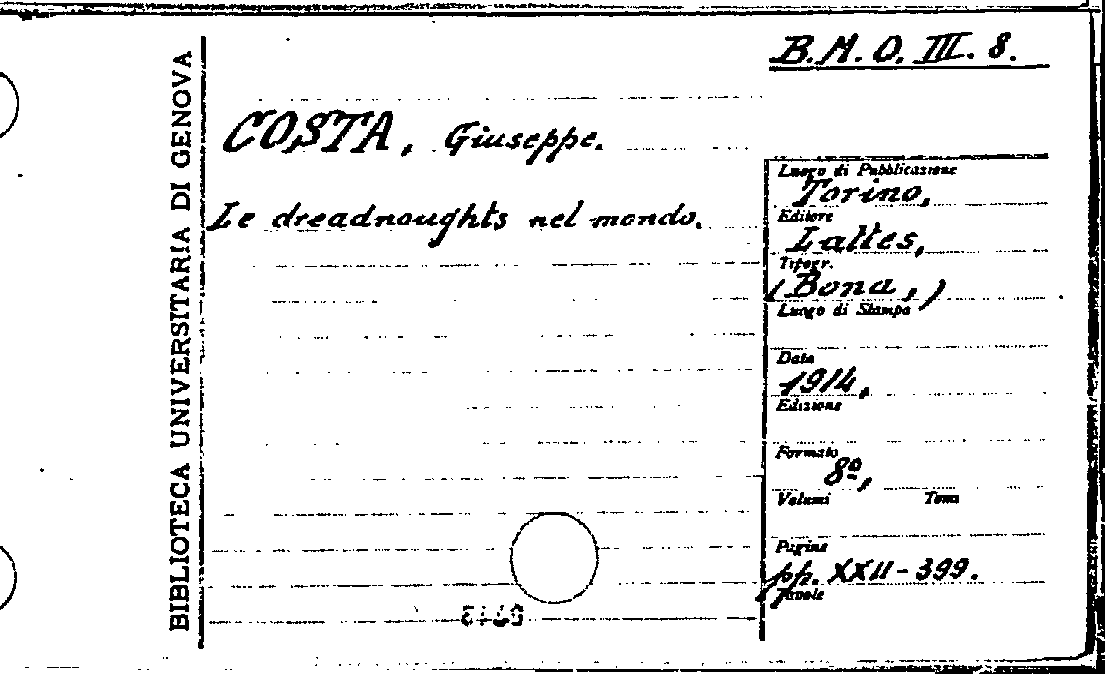 B.M.O. III. 8.
BIBLIOTECA UNIVERSITARIA DI GENOVA
COSTA, Giuseppe.
Le dreadnoughts nel mondo.
Luogo di Pubblicazione
Torino,
Editore
Lattes,
Tipogr.
(Bona,)
Luogo di Stampa
Data
1914,
Edizione
Formato
8º,
Volumi Tomi
Pagine
pp. XXII-399.
Tavole